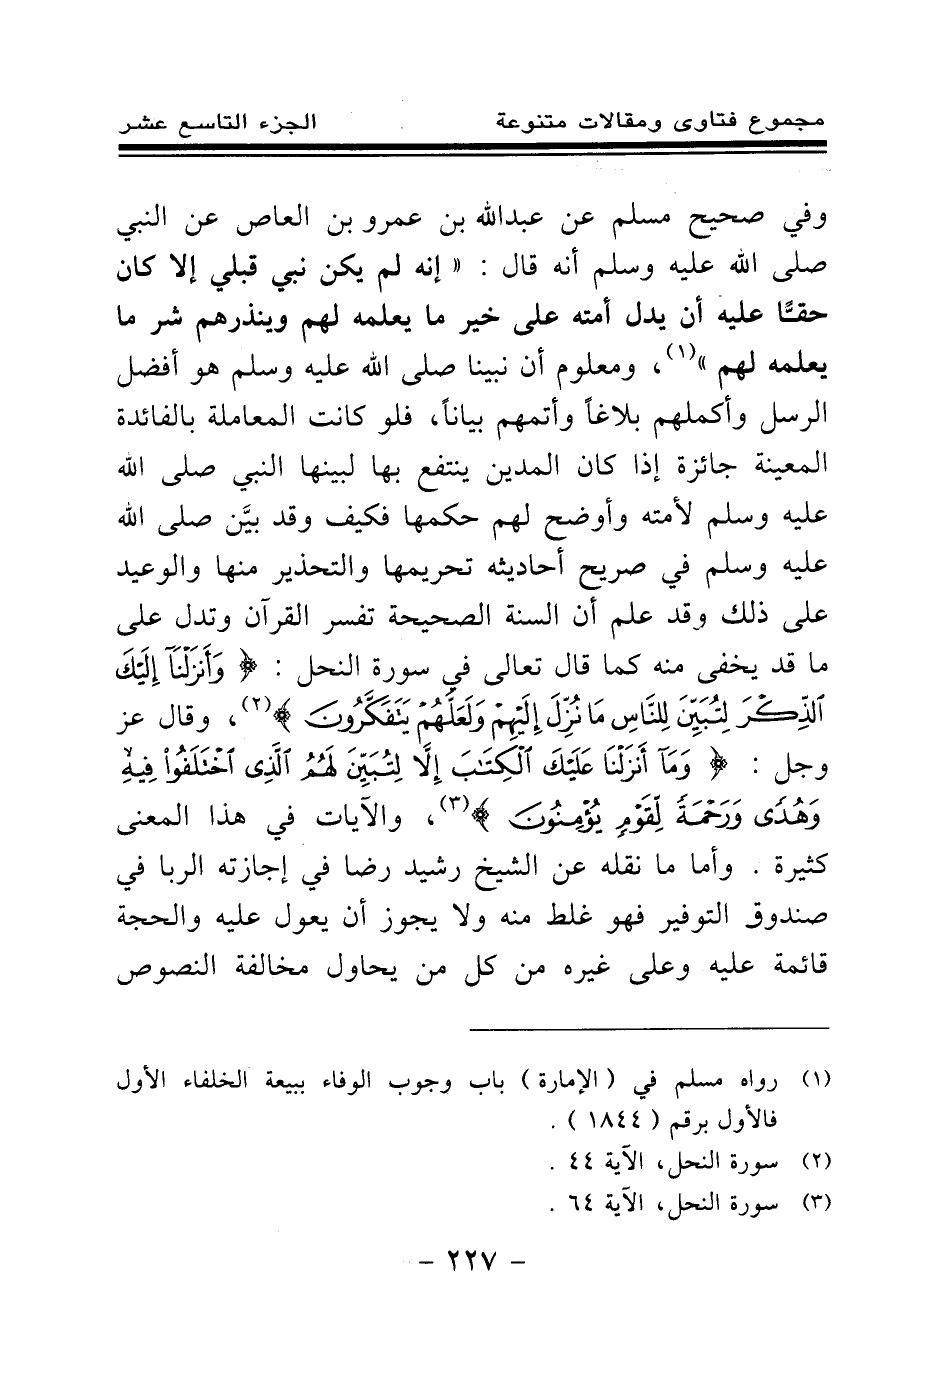 مجموع فتاوى ومقالات متنوعة الجزء التاسع عشر
وفي صحيح مسلم عن عبدالله بن عمرو بن العاص عن النبي
صلى الله عليه وسلم أنه قال : « إنه لم يكن نبي قبلي إلا كان
حقًّا عليه أن يدل أمته على خير ما يعلمه لهم وينذرهم شر ما
يعلمه لهم »(١)، ومعلوم أن نبينا صلى الله عليه وسلم هو أفضل
الرسل وأكملهم بلاغاً وأتمهم بياناً، فلو كانت المعاملة بالفائدة
المعينة جائزة إذا كان المدين ينتفع بها لبينها النبي صلى الله
عليه وسلم لأمته وأوضح لهم حكمها فكيف وقد بيَّن صلى الله
عليه وسلم في صريح أحاديثه تحريمها والتحذير منها والوعيد
على ذلك وقد علم أن السنة الصحيحة تفسر القرآن وتدل على
ما قد يخفى منه كما قال تعالى في سورة النحل : ﴿ وَأَنزَلْنَآ إِلَيْكَ
ٱلذِّكْرَ لِتُبَيِّنَ لِلنَّاسِ مَا نُزِّلَ إِلَيْهِمْ وَلَعَلَّهُمْ يَتَفَكَّرُونَ ﴾(٢)، وقال عز
وجل : ﴿ وَمَآ أَنزَلْنَا عَلَيْكَ ٱلْكِتَٰبَ إِلَّا لِتُبَيِّنَ لَهُمُ ٱلَّذِى ٱخْتَلَفُوا۟ فِيهِ
وَهُدًى وَرَحْمَةً لِّقَوْمٍ يُؤْمِنُونَ ﴾(٣)، والآيات في هذا المعنى
كثيرة . وأما ما نقله عن الشيخ رشيد رضا في إجازته الربا في
صندوق التوفير فهو غلط منه ولا يجوز أن يعول عليه والحجة
قائمة عليه وعلى غيره من كل من يحاول مخالفة النصوص
(١) رواه مسلم في ( الإمارة ) باب وجوب الوفاء ببيعة الخلفاء الأول
فالأول برقم ( ١٨٤٤ ) .
(٢) سورة النحل، الآية ٤٤ .
(٣) سورة النحل، الآية ٦٤ .
- ٢٢٧ -